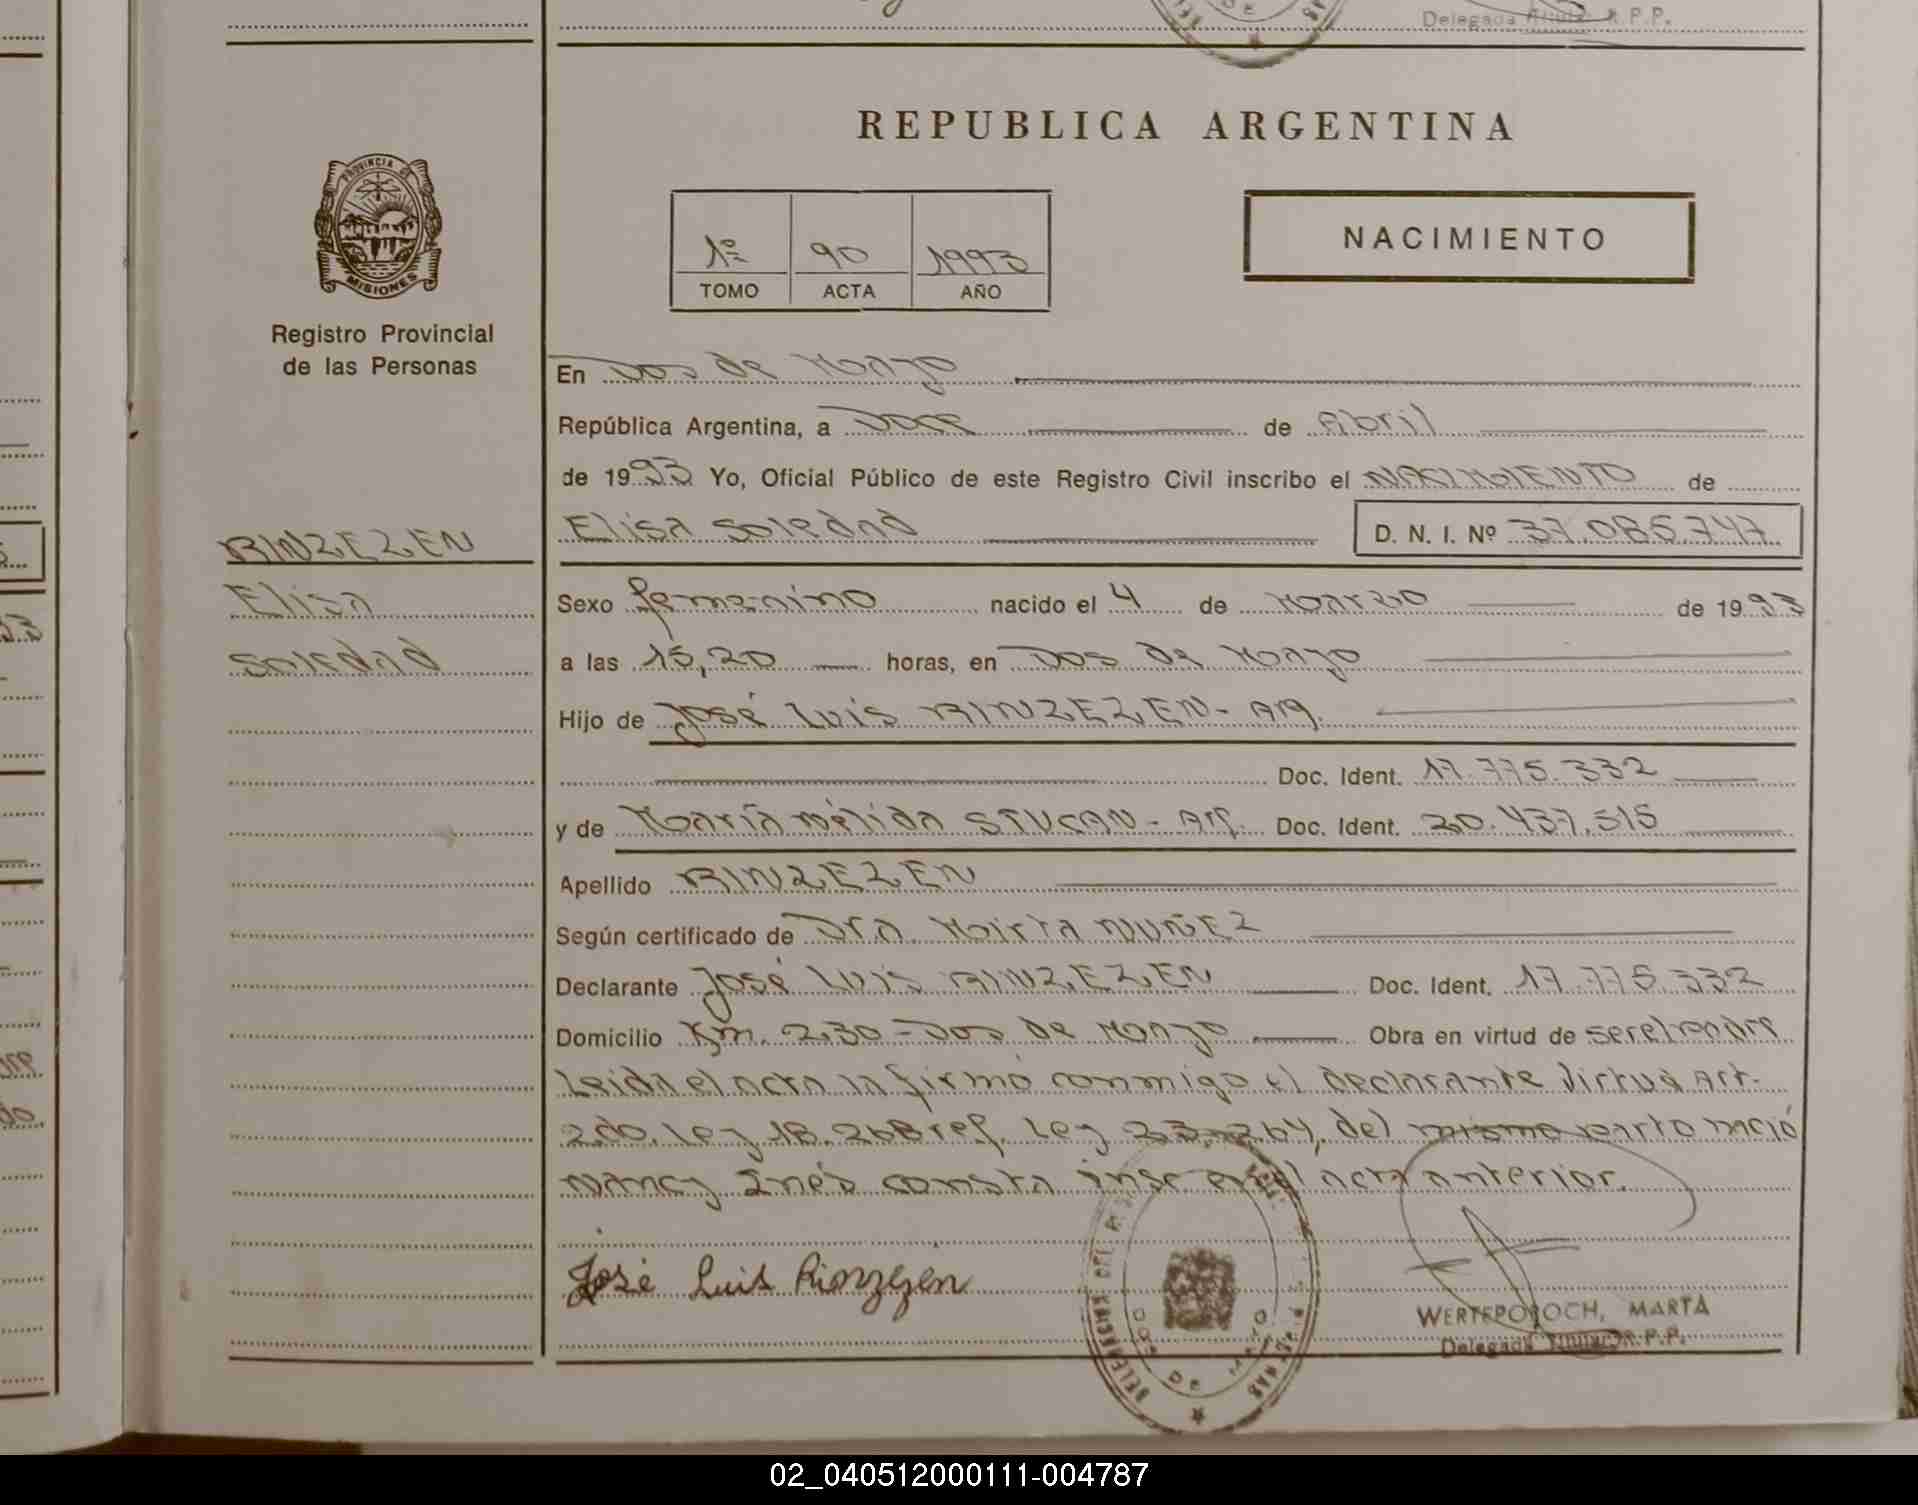 Delegada Titular R.P.P.
REPUBLICA ARGENTINA
PROVINCIA DE
MISIONES
Registro Provincial
de las Personas
1º 90 1993
TOMO ACTA AÑO
NACIMIENTO
En Dos de Mayo
República Argentina, a Doce de Abril
de 1993 Yo, Oficial Público de este Registro Civil inscribo el NACIMIENTO de
RINZEZEN
Elisa
Soledad
Elisa Soledad D. N. I. Nº 37.085.747
Sexo femenino nacido el 4 de Marzo de 1993
a las 15,20 horas, en Dos de Mayo
Hijo de José Luis RINZEZEN - Arg.
Doc. Ident. 17.775.332
y de María Nélida STUCAN - Arg. Doc. Ident. 20.437.515
Apellido RINZEZEN
Según certificado de Dra. Mirta NUÑEZ
Declarante José Luis RINZEZEN Doc. Ident. 17.775.332
Domicilio Km. 230 - Dos de Mayo Obra en virtud de ser el padre
Leida el acta la firmó conmigo el declarante Virtud Art.
2do. Ley 18.248 ref. Ley 23.264, del mismo parto nació
Nancy Inés consta insc en el acta anterior.
José Luis Rinzezen
DOS DE MAYO
WERTEPOROCH, MARTA
Delegada Titular R.P.P.
02_040512000111-004787